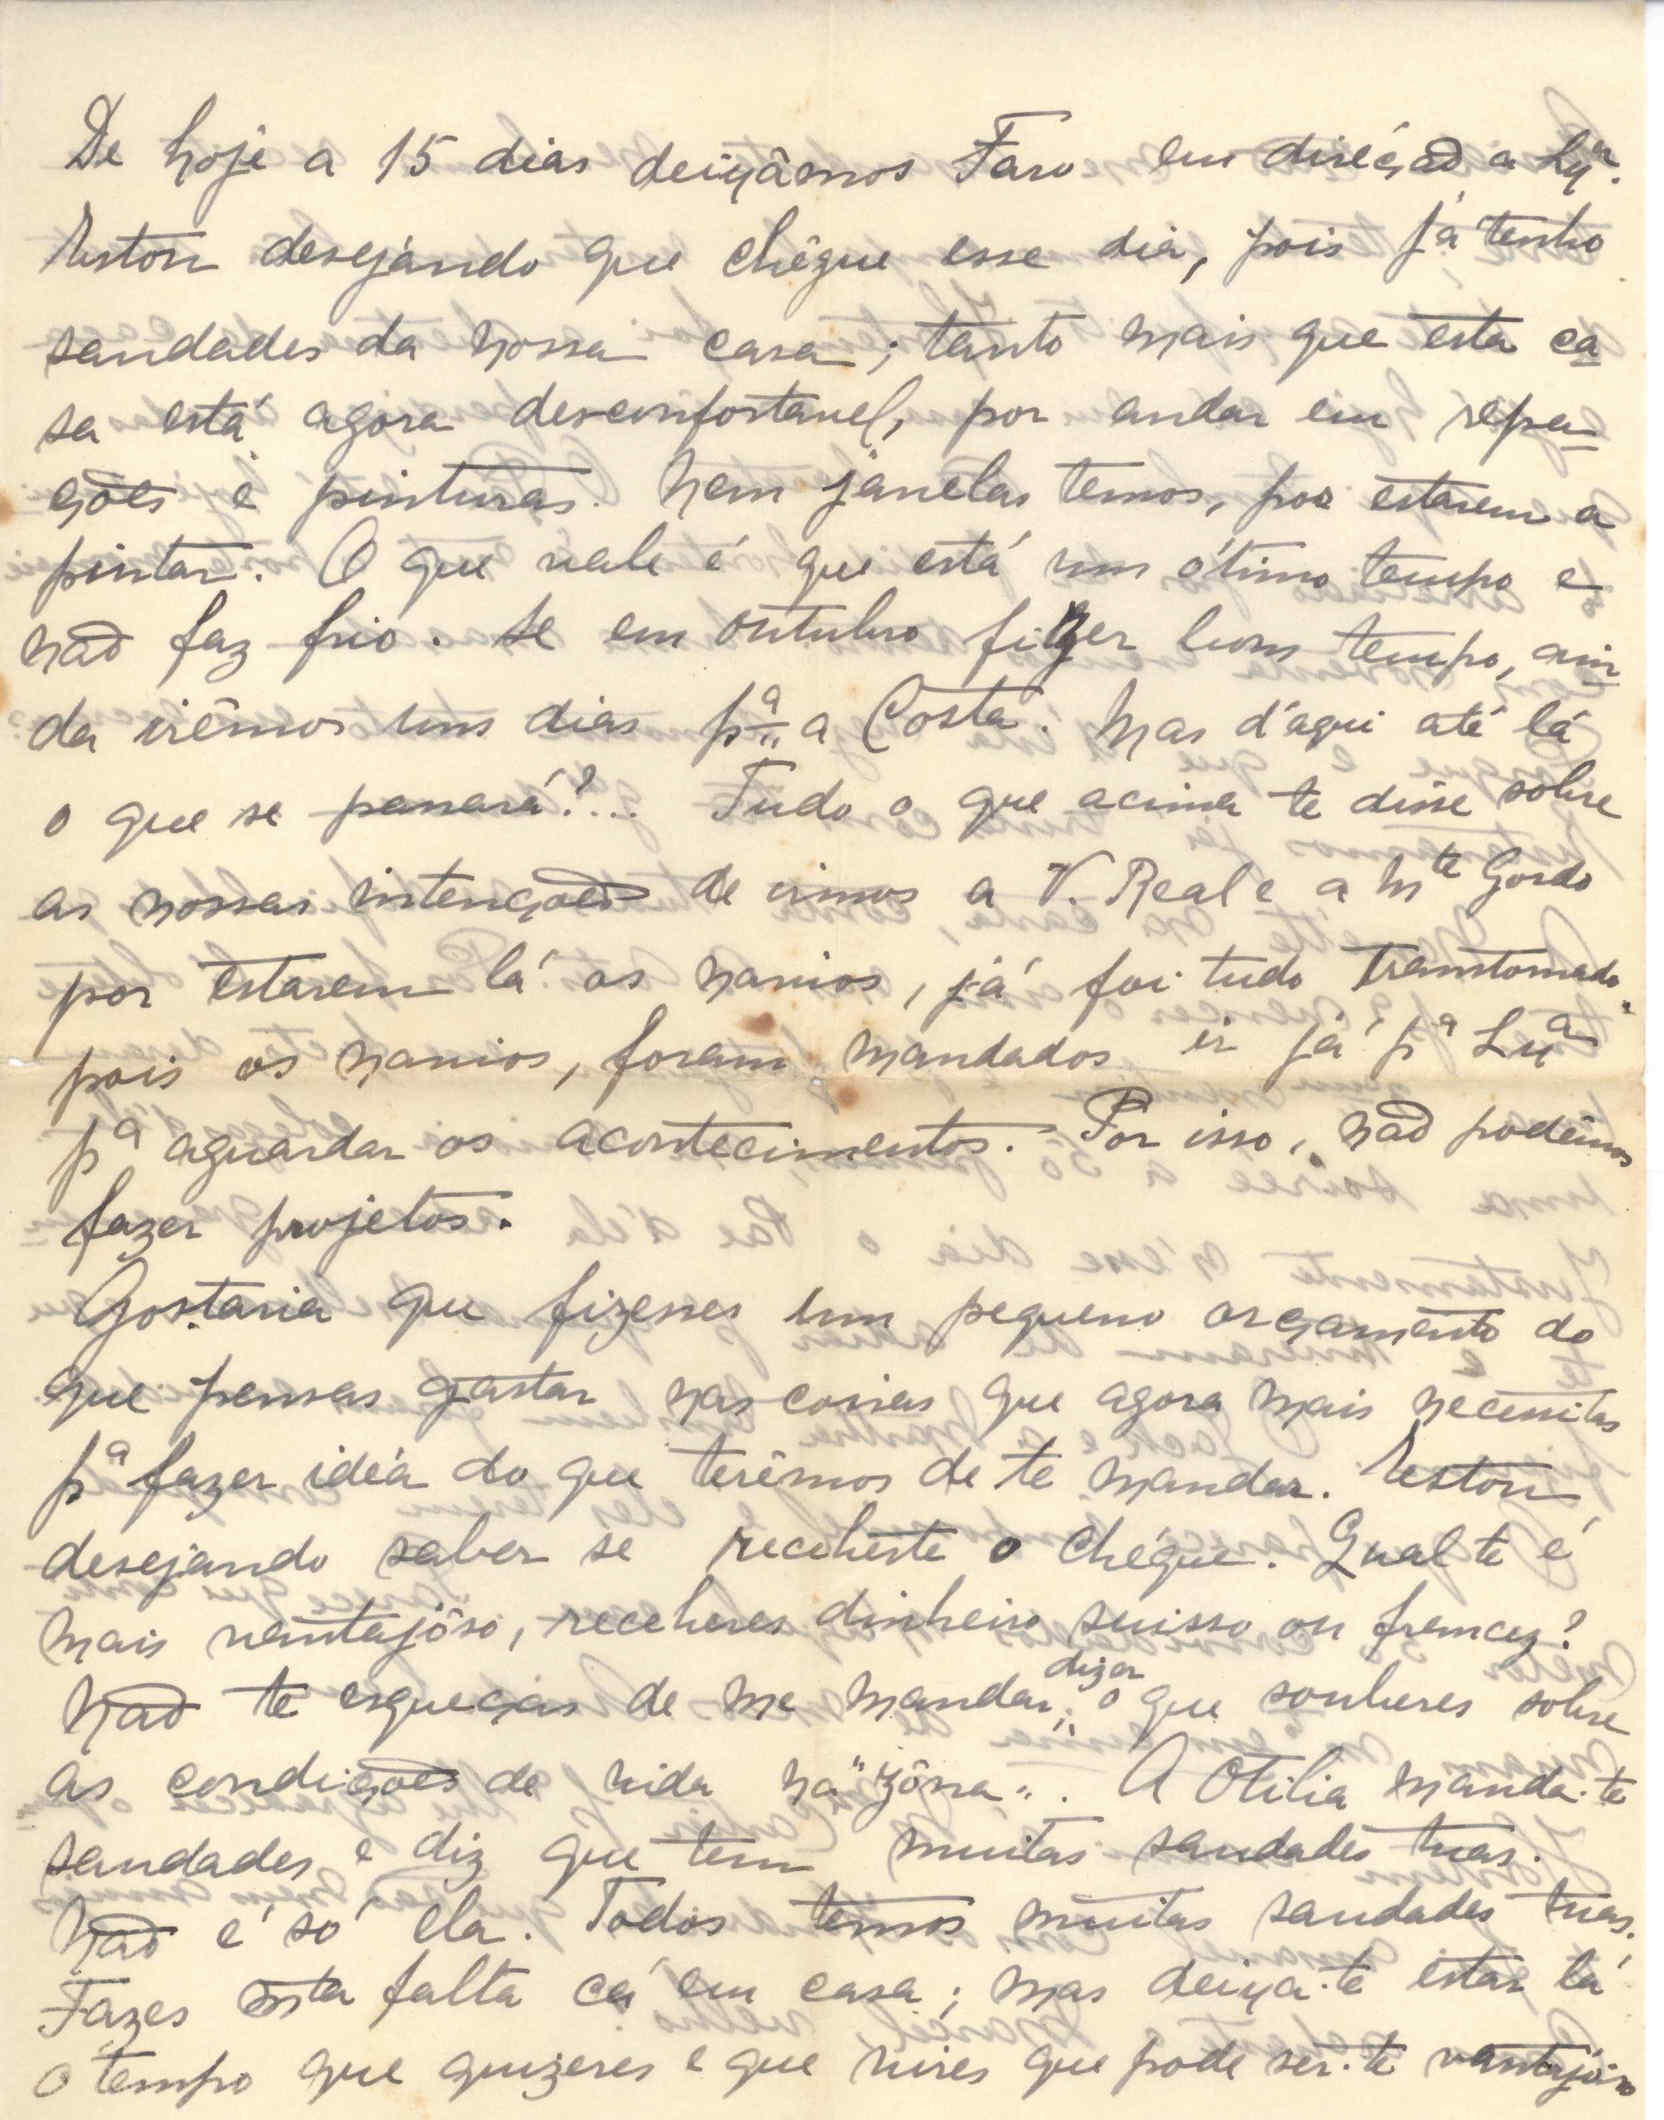 De hoje a 15 dias deixâmos Faro em diréçaõ a Lxª.
Estou desejando que chêgue esse dia, pois já tenho
saudades da nossa casa; tanto mais que esta ca
sa está agora desconfortavel, por andar em repa
ções e pinturas. Nem janelas temos, por estarem a
pintar. O que vale é que está um ótimo tempo e
naõ faz frio. Se em outubro fizer bom tempo, ain
da irêmos uns dias pª a Costa. Mas d'aqui até lá
o que se passará?... Tudo o que acima te disse sobre
as nossas intençoẽs de irmos a V. Real e a Mte Gordo
por estarem lá os navios, já foi tudo transtornado,
pois os navios, foram mandados ir já pª Lxª
pª aguardar os acontecimentos. Por isso, naõ podêmos
fazer projetos.
Gostaria que fizesses um pequeno orçamento do
que pensas gastar nas coisas que agora mais necessitas
pª fazer idéa do que terêmos de te mandar. Estou
desejando saber se recebeste o chéque. Qual te é
mais vantajôso, receberes dinheiro suisso ou francez?
Naõ te esqueças de me mandar dizer o que souberes sobre
as condiçoẽs de vida na "zôna". A Otilia manda-te
saudades e diz que tem muitas saudades tuas.
Naõ é só ela. Todos temos muitas saudades tuas.
Fazes falta cá em casa; mas deixa-te estar lá
o tempo que quizeres e que vires que pode ser-te vantajôso